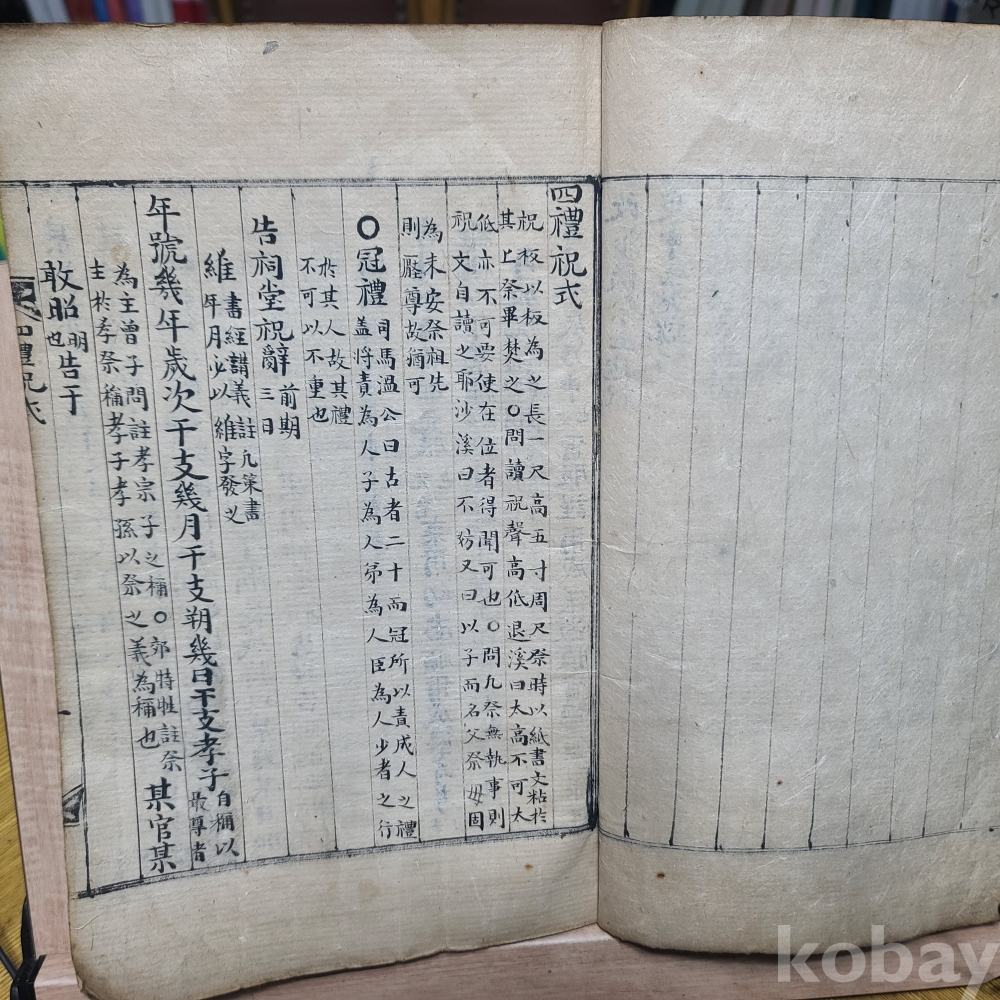 四禮祝式
祝板以板為之長一尺高五寸周尺祭時以紙書文粘於
其上祭畢焚之○問讀祝聲高低退溪曰太高不可太
低亦不可要使在位者得聞可也○問凡祭無執事則
祝文自讀之耶沙溪曰不妨又曰以子而名父祭毋固
為未安祭祖先
則厭尊故猶可
○冠禮
司馬溫公曰古者二十而冠所以責成人之禮
盖將責為人子為人弟為人臣為人少者之行
於其人故其禮
不可以不重也
告祠堂祝辭
前期
三日
維
書經講義註凡策書
年月必以維字發之
年號幾年歲次干支幾月干支朔幾日干支孝子
自稱以
最尊者
為主曾子問註孝宗子之稱○郊特牲註祭
主於孝祭稱孝子孝孫以祭之義為稱也
某官某
敢昭
明
也
告于
四禮祝式
kobay